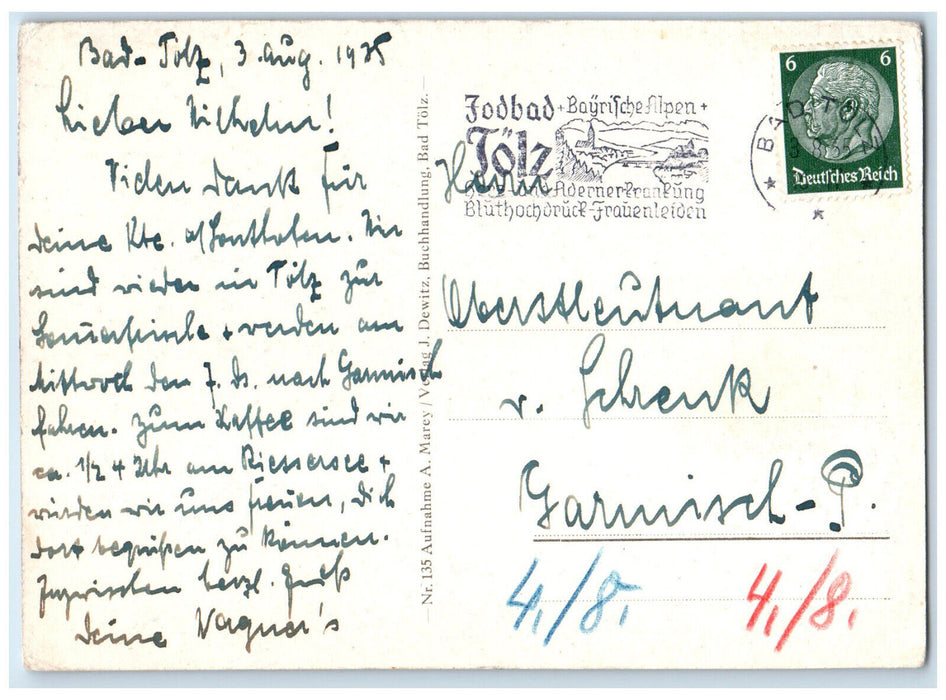 Bad-Tölz, 3. Aug. 1935
Lieber Wilhelm!
Vielen Dank für
deine Kte. a/Sonthofen. Wir
sind wieder in Tölz zur
+ werden am
Mittwoch den 7. ds. nach Garmisch
fahren. Zum Kaffee sind wir
ca. 1/2 4 Uhr am Riessersee +
würden wir uns freuen, Dich
dort begrüßen zu können.
Inzwischen herzl. Grüße
Deine Wagner's
Nr. 135 Aufnahme A. Marey / Verlag J. Dewitz, Buchhandlung, Bad Tölz.
Jodbad + Bayrische Alpen +
Tölz
Herz und Adernerkrankung
Bluthochdruck-Frauenleiden
BAD TÖLZ
6 6
Deutsches Reich
Herrn
Oberstleutnant
v. Schrenk
Garmisch-P.
4./8. 4./8.